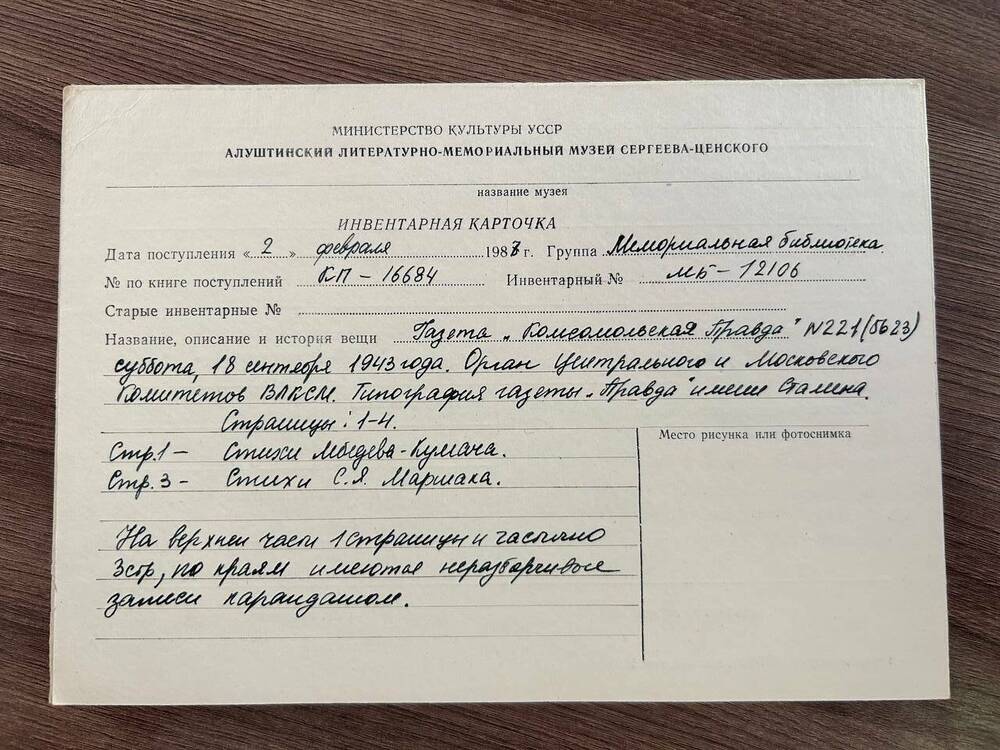 МИНИСТЕРСТВО КУЛЬТУРЫ УССР
АЛУШТИНСКИЙ ЛИТЕРАТУРНО-МЕМОРИАЛЬНЫЙ МУЗЕЙ СЕРГЕЕВА-ЦЕНСКОГО
название музея
ИНВЕНТАРНАЯ КАРТОЧКА
Дата поступления « 2 » февраля 198 г. Группа Мемориальная библиотека
№ по книге поступлений КП - 16684 Инвентарный № МБ - 12106
Старые инвентарные №
Название, описание и история вещи Газета „Комсомольская Правда" N221(5623)
суббота, 18 сентября 1943 года. Орган Центрального и Московского
Комитетов ВЛКСМ. Типография газеты „Правда" имени Сталина.
Страницы: 1-4.
Место рисунка или фотоснимка
Стр.1 - Стихи Лебедева-Кумача.
Стр.3 - Стихи С.Я. Маршака.
На верхней части 1 страницы и частично
3 стр, по краям имеются неразборчивые
записи карандашом.